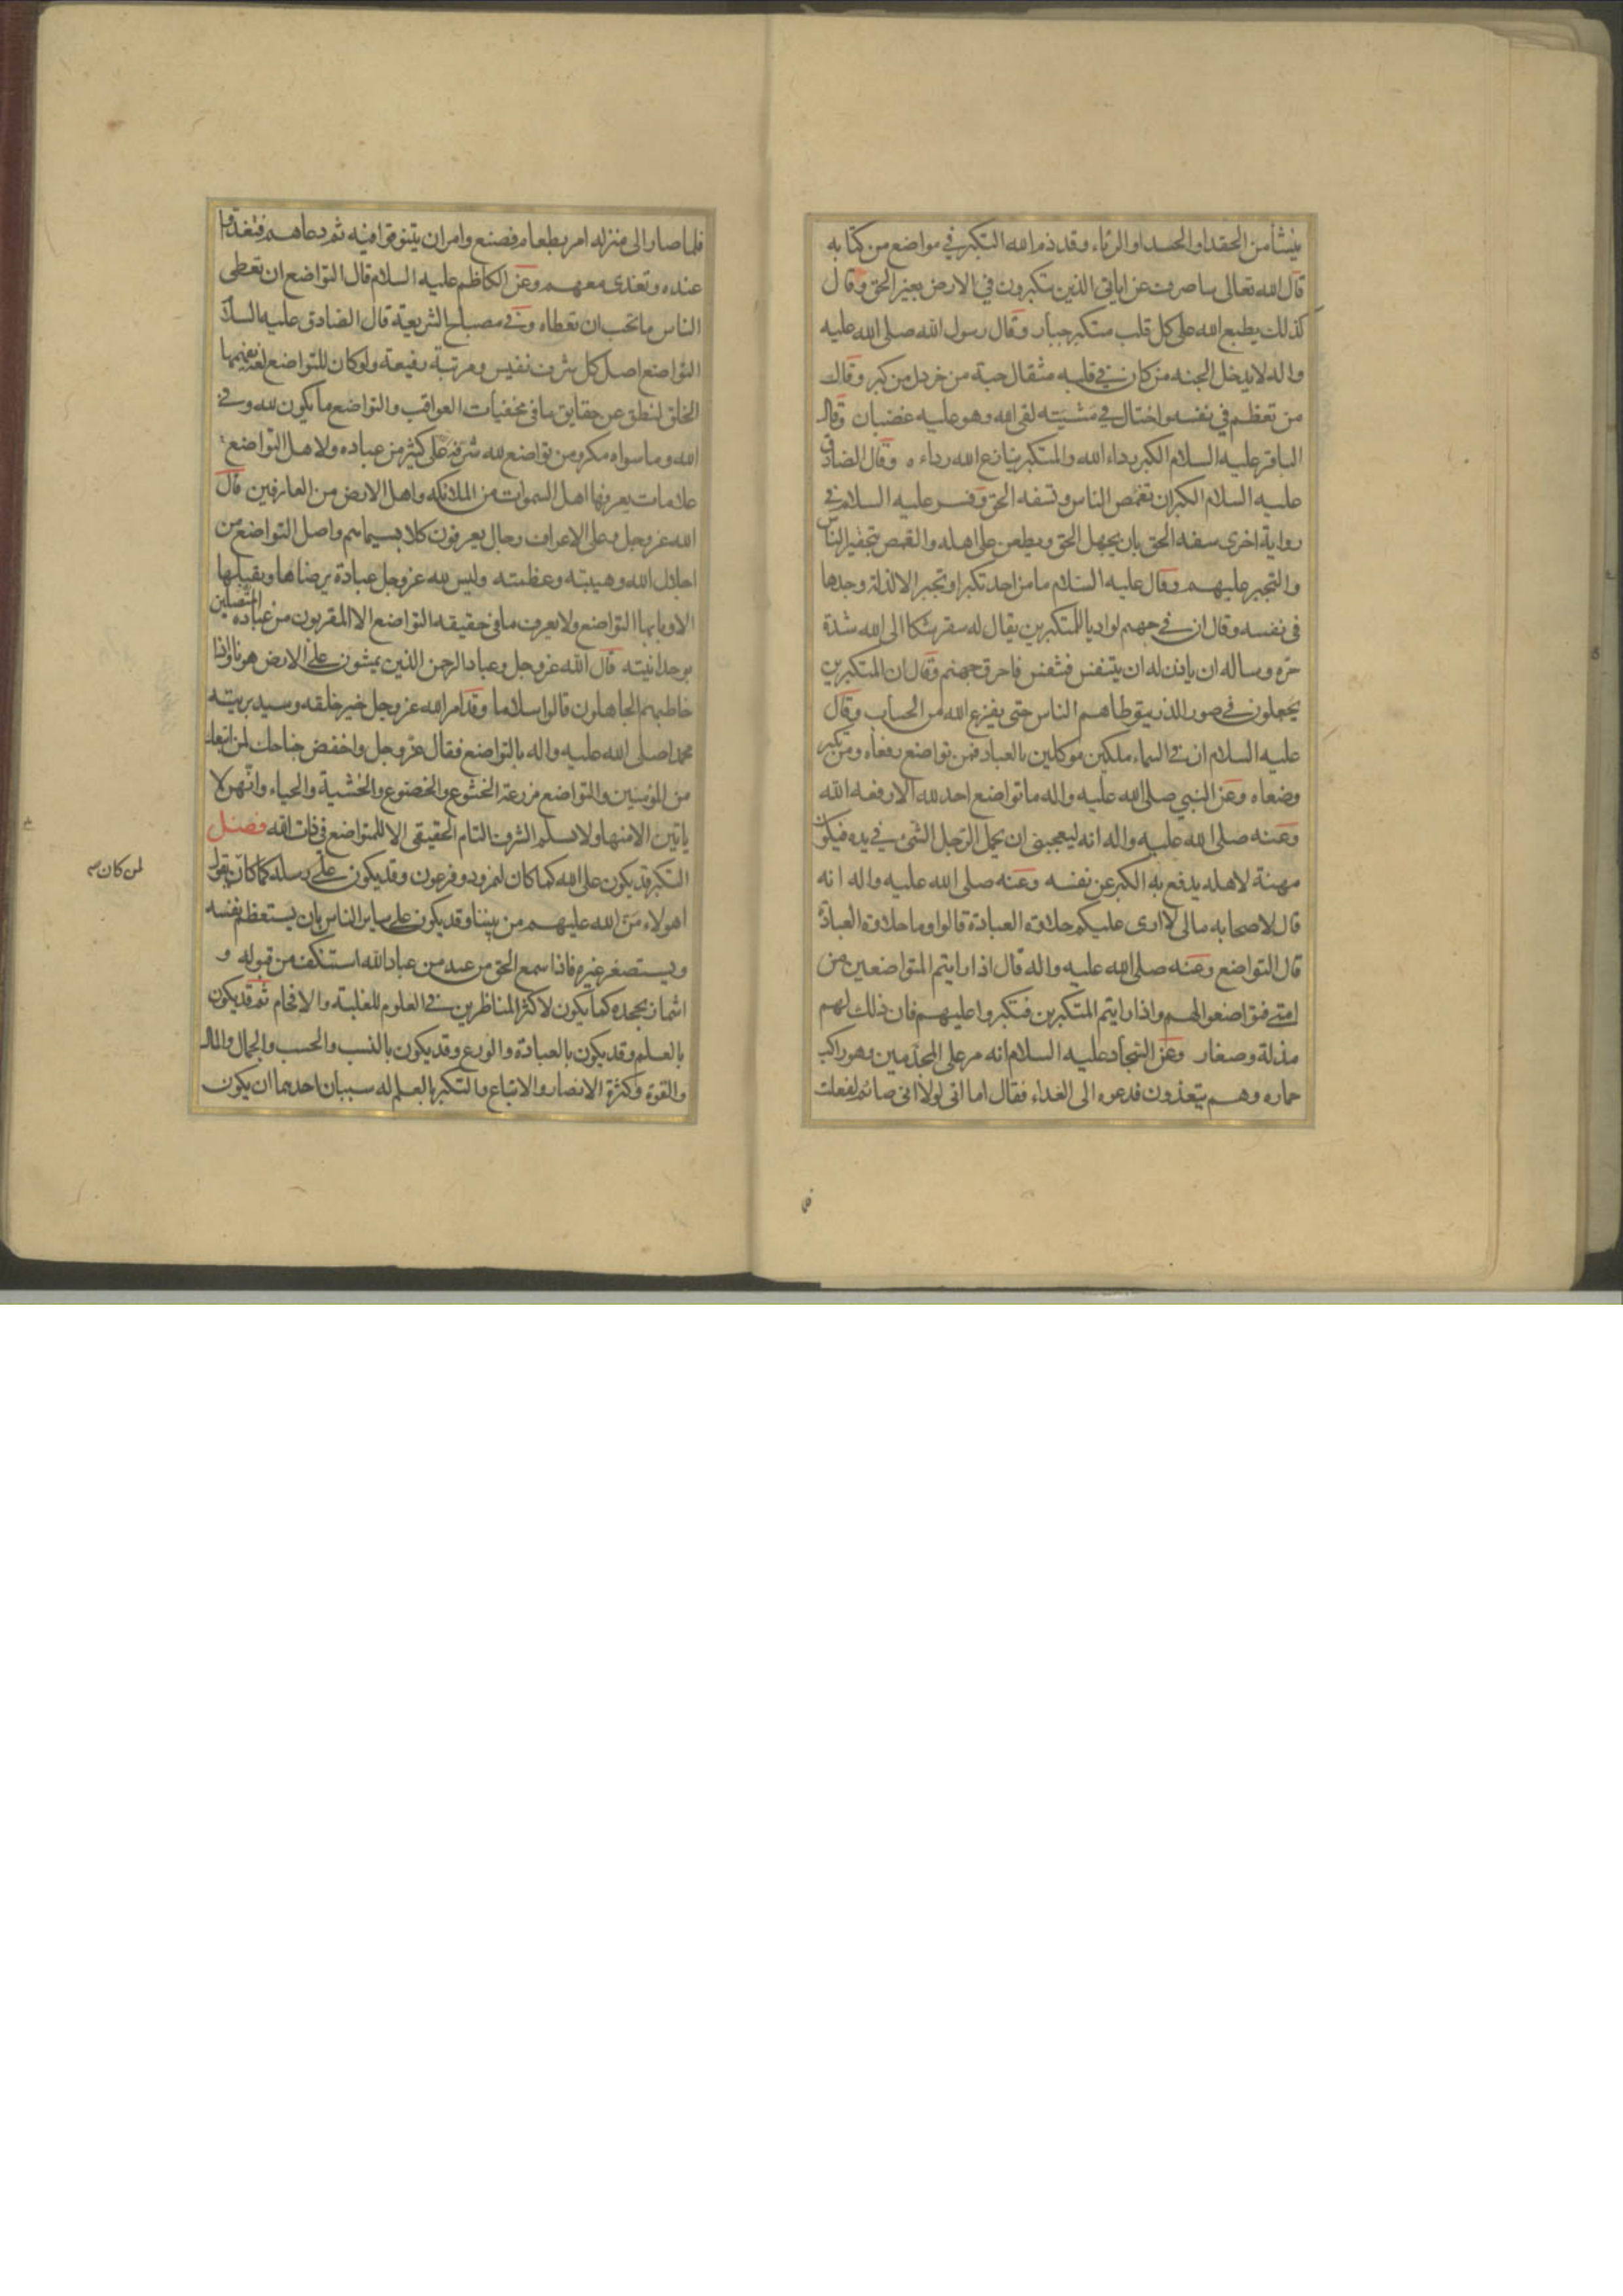 ينشأ من الحقد او الحسد او الرياء وقد ذم الله التكبر في مواضع من كتابه
قال الله تعالى ساصرف عن اياتي الذين يتكبرون في الارض بغير الحق وقال
كذلك يطبع الله على كل قلب متكبر جبار وقال رسول الله صلى الله عليه
واله لا يدخل الجنه من كان في قلبه مثقال حبة من خردل من كبر وقال
من تعظم في نفسه واختال في مشيته لقى الله وهو عليه غضبان وقال
الباقر عليه السلام الكبر رداء الله والمتكبر ينازع الله رداءه وقال الصادق
عليه السلام الكبر ان تغمص الناس وتسفه الحق وفسر عليه السلام في
رواية اخرى سفه الحق بان يجهل الحق ويطعن على اهله والغمص بتحقير الناس
والتجبر عليهم وقال عليه السلام ما من احد تكبر او تجبر الا لذلة وجدها
في نفسه وقال ان في جهنم لواديا للمتكبرين يقال له سقر شكا الى الله شدة
حره وساله ان ياذن له ان يتنفس فتنفس فاحرق جهنم وقال ان المتكبرين
يجعلون في صور الذر يتوطاهم الناس حتى يفزع الله من الحساب وقال
عليه السلام ان في السماء ملكين موكلين بالعباد فمن تواضع رفعاه ومن تكبر
وضعاه وعن النبي صلى الله عليه واله ما تواضع احد لله الا رفعه الله
وعنه صلى الله عليه واله انه ليعجبني ان يحمل الرجل الشئ في يده فيكون
مهنة لاهله يدفع به الكبر عن نفسه وعنه صلى الله عليه واله انه
قال لاصحابه مالي لا ارى عليكم حلاوة العبادة قالوا وما حلاوة العبادة
قال التواضع وعنه صلى الله عليه واله قال اذا رايتم المتواضعين من
امتي فتواضعوا لهم واذا رايتم المتكبرين فتكبروا عليهم فان ذلك لهم
مذلة وصغار وعن السجاد عليه السلام انه مر على المجذمين وهو راكب
حماره وهم يتغذون فدعوه الى الغداء فقال اما اني لولا اني صائم لفعلت
فلما صار الى منزله امر بطعام فصنع وامر ان يتنوقوا فيه ثم دعاهم فتغدوا
عنده وتغدى معهم وعن الكاظم عليه السلام قال التواضع ان تعطي
الناس ما تحب ان تعطاه وفي مصباح الشريعة قال الصادق عليه السلام
التواضع اصل كل شرف نفيس ومرتبة رفيعة ولو كان للتواضع لغة يفهمها
الخلق لنطق عن حقايق ما في مخفيات العواقب والتواضع ما يكون لله وفي
الله وما سواه مكر ومن تواضع لله شرفه على كثير من عباده ولاهل التواضع
علامات يعرفها اهل السموات من الملائكه واهل الارض من العارفين قال
الله عز وجل وعلى الاعراف رجال يعرفون كلا بسيماهم واصل التواضع من
اجلال الله وهيبته وعظمته وليس لله عز وجل عبادة يرضاها ويقبلها
الا وبابها التواضع ولا يعرف ما في حقيقه التواضع الا المقربون من عباده المتصلين
بوحدانيته قال الله عز وجل وعباد الرحمن الذين يمشون على الارض هونا واذا
خاطبهم الجاهلون قالوا سلاما وقد امر الله عز وجل خير خلقه وسيد بريته
محمدا صلى الله عليه واله بالتواضع فقال عز وجل واخفض جناحك لمن اتبعك
من المؤمنين والتواضع مزرعة الخشوع والخضوع والخشية والحياء وانهن لا
ياتين الا منها ولا يسلم الشرف التام الحقيقي الا للمتواضع في ذات الله فصل
التكبر قد يكون على الله كما كان لنمرود وفرعون وقد يكون على رسله كما كان يقول
لمن كان
اهولاء من الله عليهم من بيننا وقد يكون على ساير الناس بان يستعظم نفسه
ويستصغر غيره فاذا سمع الحق من عبد من عباد الله استنكف من قبوله و
اشماز بجحده كما يكون لاكثر المناظرين في العلوم للغلبة والافحام ثم قد يكون
بالعلم وقد يكون بالعبادة والورع وقد يكون بالنسب والحسب والجمال والمال
والقوة وكثرة الانصار والاتباع والتكبر بالعلم له سببان احدهما ان يكون